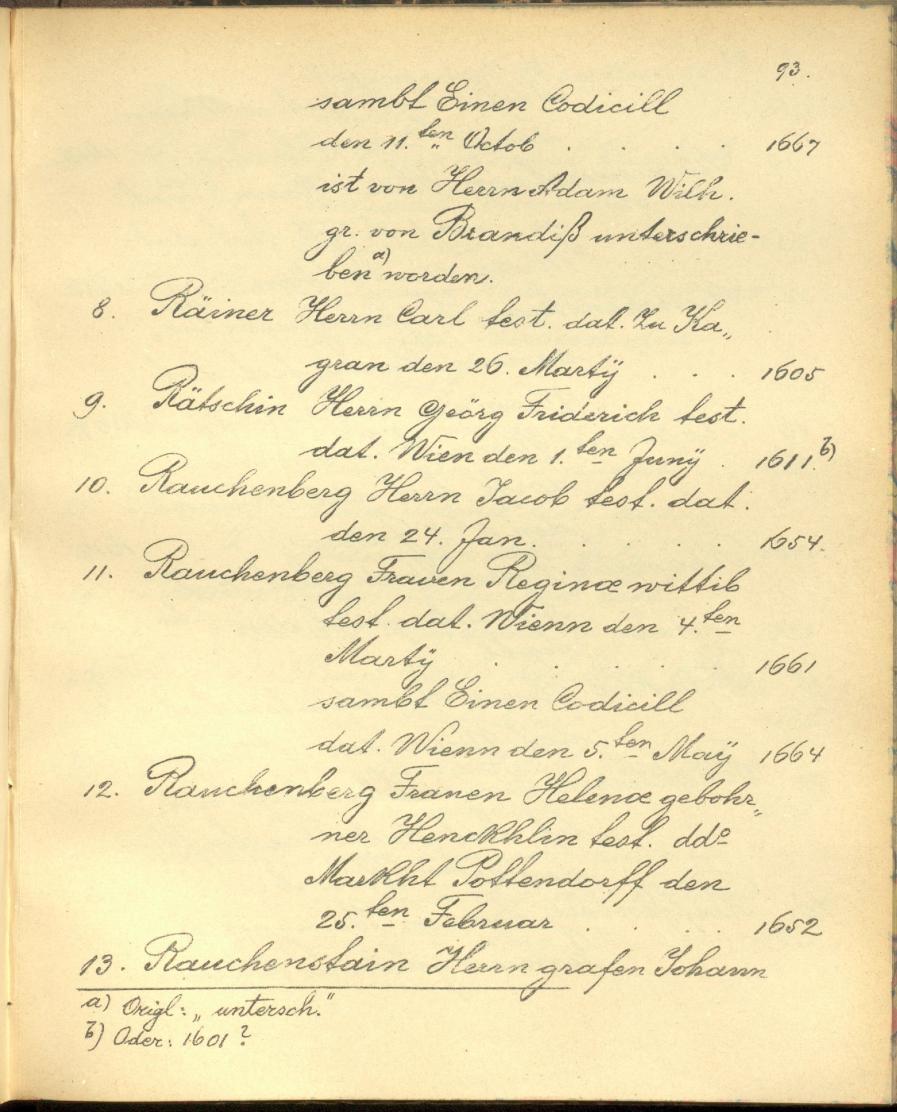 93.
sambt Einen Codicill
den 11.ten Octob . . . . 1667
ist von Herrn Adam Wilh.
gr. von Brandiß unterschrie-
ben a) worden.
8. Räiner Herrn Carl test. dat. Zu Ka„
gran den 26. Martÿ . . . 1605
9. Rätschin Herrn Geörg Friderich test.
dat. Wien den 1.ten Junÿ . 1611. b)
10. Rauchenberg Herrn Jacob test. dat.
den 24. Jan. . . . . 1654.
11. Rauchenberg Frauen Reginæ wittib
test. dat. Wienn den 4.ten
Martÿ . . . . . 1661
sambt Einen Codicill
dat. Wienn den 5.ten Maÿ 1664
12. Rauchenberg Frauen Helenæ gebohr„
ner Henckhlin test. ddo
Markht Pottendorff den
25.ten Februar . . . . 1652
13. Rauchenstain Herrn grafen Johann
a) Origl: „untersch."
b) Oder: 1601?